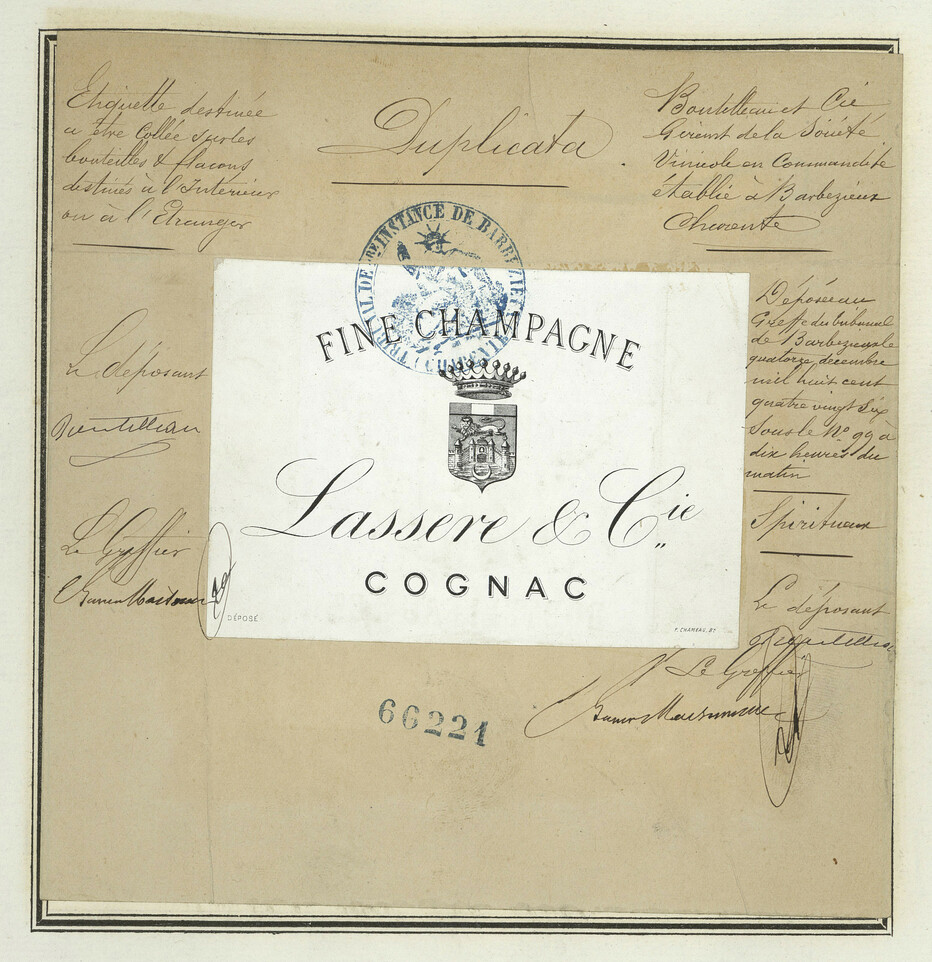 Etiquette destinée
a être Collée sur les
bouteilles & flacons
destinés à l'Intérieur
ou à l'Etranger
Duplicata
Boutelleau et Cie
Gérant de la Société
Vinicole en Commandite
établie à Barbezieux
Charente
TRIBUNAL DE 1re INSTANCE DE BARBEZIEUX (CHARENTE)
FINE CHAMPAGNE
Lassere & Cie
COGNAC
DÉPOSÉ
F. CHAMEAU, BX
Déposée au
Greffe du tribunal
de Barbezieux le
quatorze décembre
mil huit cent
quatre vingt Six
sous le No 99 à
dix heures du
matin
Spiritueux
Le déposant
Le Greffier
Le déposant
Le Greffier
66221